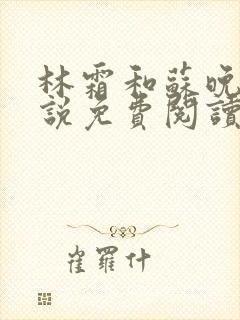 林霜和蘇晚
說免費閱讀
崔羅什